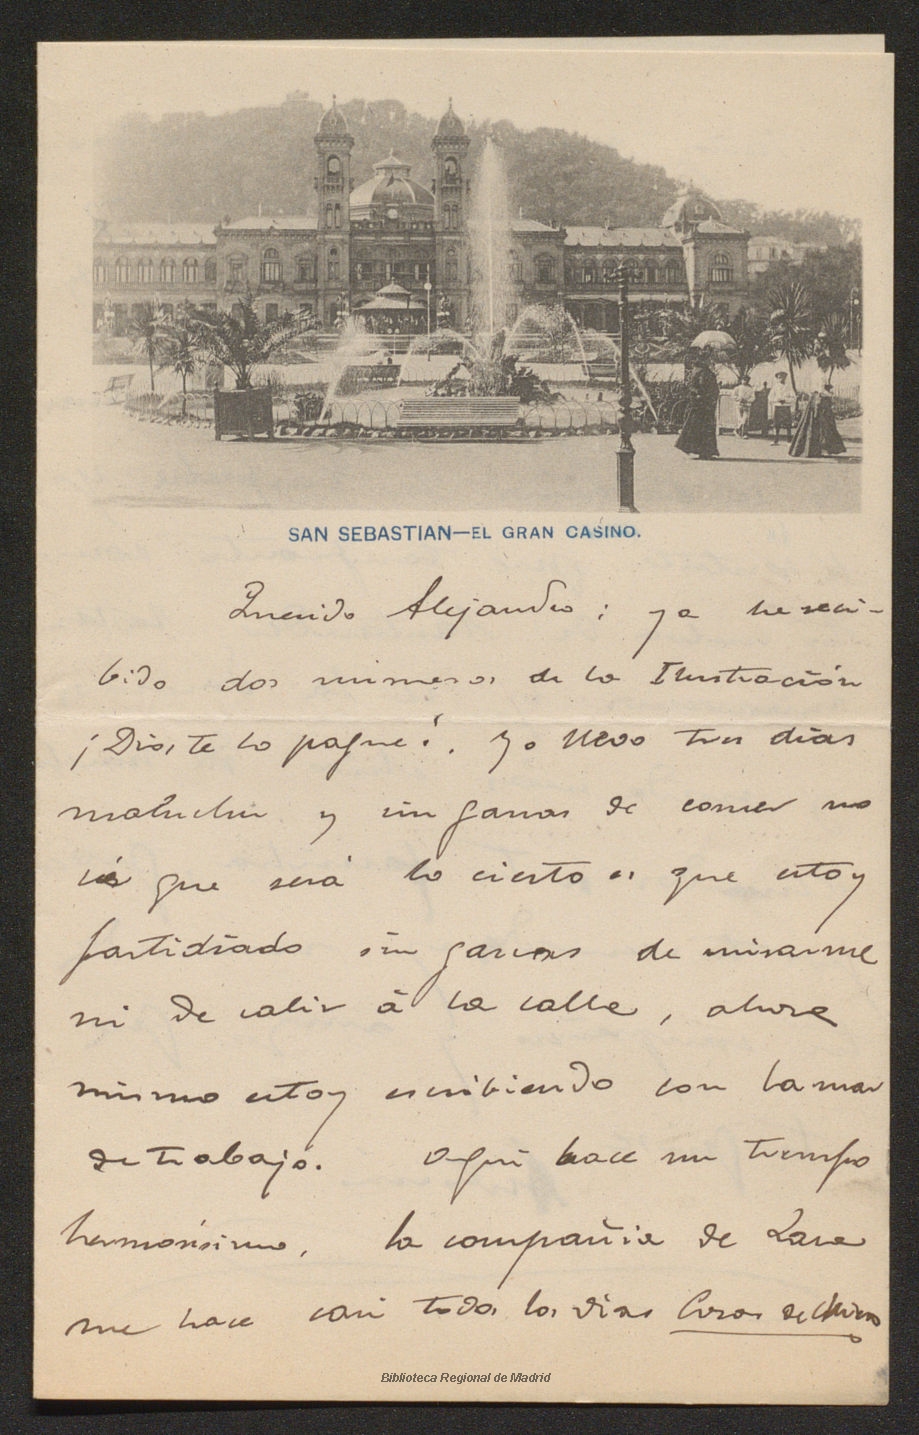 SAN SEBASTIAN—EL GRAN CASINO.
Querido Alejandro; ya he reci-
bido dos numeros de la Ilustración
¡Dios te lo pague!. Yo llevo tres dias
malucho y sin ganas de comer no
sé que será lo cierto es que estoy
fastidiado sin ganas de mirarme
ni de salir á la calle, ahora
mismo estoy escribiendo con la mar
de trabajo. Aqui hace un tiempo
hermosisimo, la compañia de Lara
me hace casi todos los dias Cosas de
Biblioteca Regional de Madrid